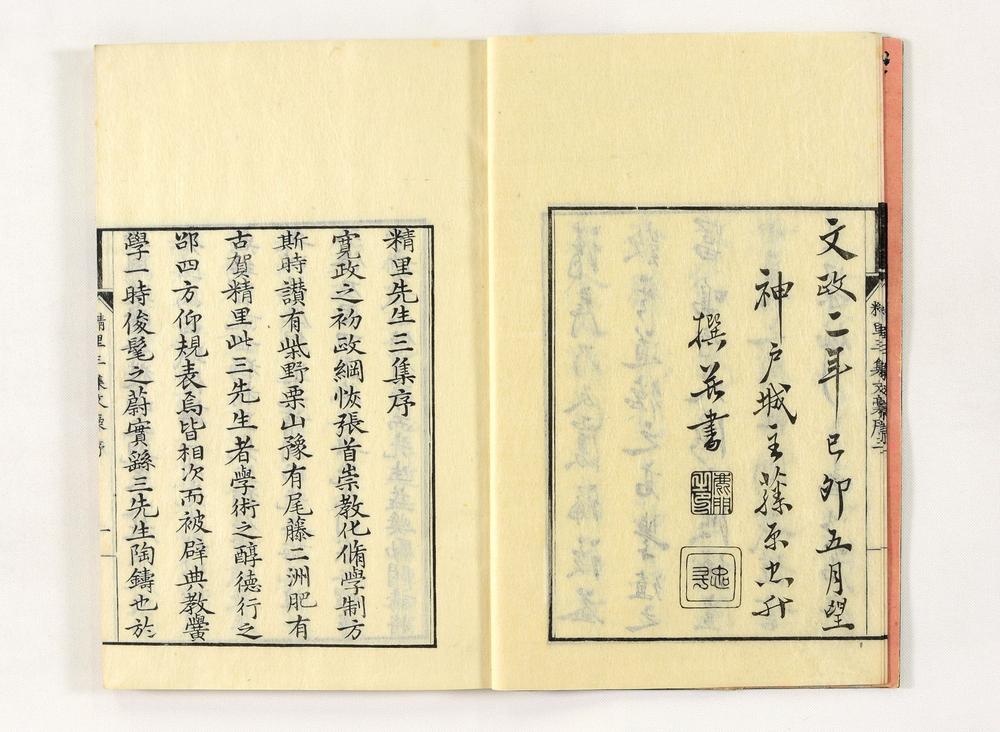 文政二年己卯五月望
神戸城主藤原忠升
撰并書
精里先生三集序
寛政之初政綱恢張首崇教化脩學制方
斯時讃有柴野栗山豫有尾藤二洲肥有
古賀精里此三先生者學術之醇德行之
邵四方仰規表焉皆相次而被辟典教黌
學一時俊髦之蔚實繇三先生陶鑄也於